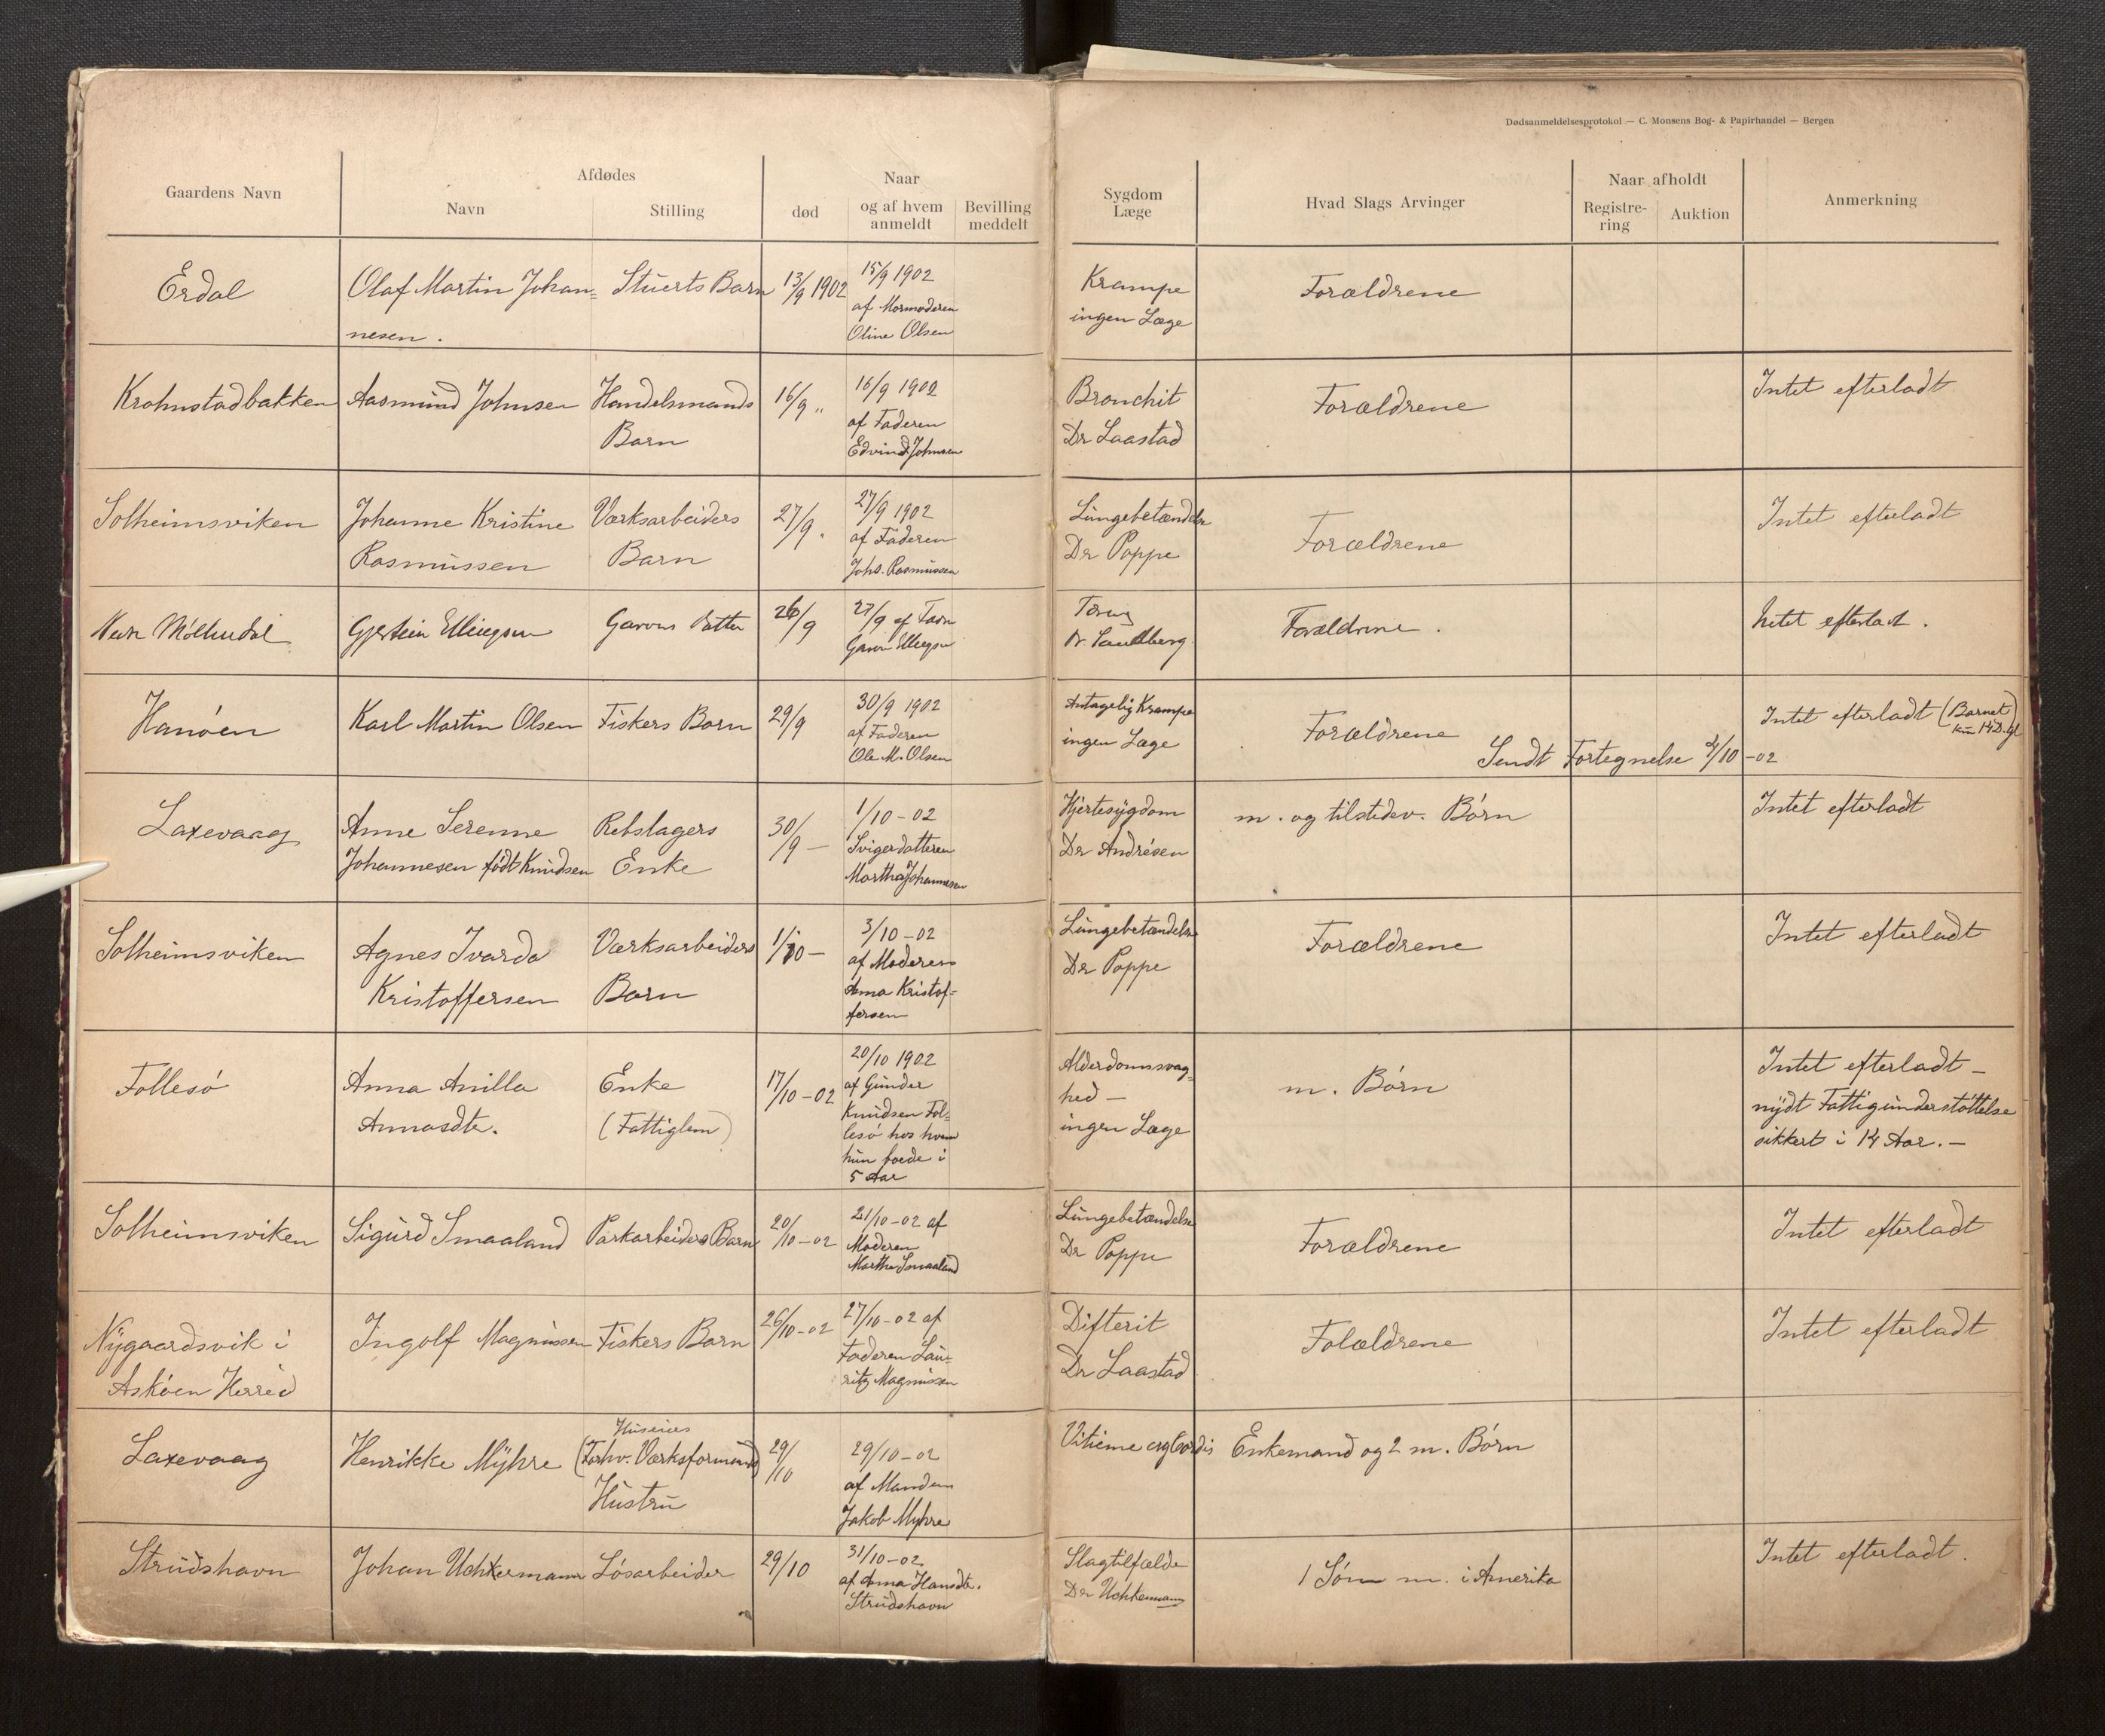 Dødsanmeldelsesprotokol — C. Monsens Bog- & Papirhandel — Bergen
Gaardens Navn
Afdødes
Navn
Stilling
død
Naar
og af hvem
anmeldt
Bevilling
meddelt
Sygdom
Læge
Hvad Slags Arvinger
Naar afholdt
Registre-
ring
Auktion
Anmerkning
Erdal
Olaf Martin Johan=
nesen.
Stuerts Barn
13/9 1902
15/9 1902
af Mormoderen
Oline Olsen
Krampe
ingen Læge
Forældrene
Krohnstadbakken
Aasmund Johnsen
Handelsmands
Barn
16/9 "
16/9 1902
af Faderen
Edvind Johnsen
Bronchit
Dr Laastad
Forældrene
Intet efterladt
Solheimsviken
Johanne Kristine
Rasmussen
Værksarbeiders
Barn
27/9.
27/9 1902
af Faderen
Johs. Rasmussen
Lungebetændelse
Dr Poppe
Forældrene
Intet efterladt
Gjertein Ellingsen
Garvers Datter
26/9
27/9 af Fader
Garver Ellingsen
Tæring
Dr. Sandberg.
Forældrene.
Intet efterladt.
Hanøen
Karl Martin Olsen
Fiskers Barn
29/9
30/9 1902
af Faderen
Ole M. Olsen
Antagelig Krampe
ingen Læge
Forældrene
Intet efterladt (Barnet
kun 14 D. gl)
Sendt Fortegnelse 2/10-02
Laxevaag
Anne Serenne
Johannesen født Knudsen
Rebslagers
Enke
30/9 —
1/10-02
Svigerdatteren
Martha Johannesen
Hjertesygdom
Dr Andrésen
m. og tilstedev. Børn
Intet efterladt
Solheimsviken
Agnes Ivarda
Kristoffersen
Værksarbeiders
Barn
1/10 —
3/10-02
af Moderen
Anna Kristof=
fersen
Lungebetændelse
Dr Poppe
Forældrene
Intet efterladt
Follesø
Anna Anilla
Annasdtr.
Enke
(Fattiglem)
17/10-02
20/10 1902
af Gunder
Knudsen Fol=
lesø hos hvem
hun boede i
5 Aar
Alderdomssvag=
hed —
ingen Læge
m. Børn
Intet efterladt —
nydt Fattigunderstøttelse
sikkert i 14 Aar. —
Solheimsviken
Sigurd Smaaland
Parkarbeiders Barn
20/10-02
21/10-02 af
Moderen
Martha Smaaland
Lungebetændelse
Dr Poppe
Forældrene
Intet efterladt
Nygaardsvik i
Askøen Herred
Ingolf Magnussen
Fiskers Barn
26/10-02
27/10-02 af
Faderen Lau=
ritz Magnussen
Difterit
Dr Laastad
Folældrene
Intet efterladt
Laxevaag
Henrikke Myhre
Huseiers
(Forhv. Værksformand)
Hustru
29/10
29/10-02
af Manden
Jakob Myhre
Vitieme org Cordis
Enkemand og 2 m. Børn
Strudshavn
Johan Uchermann
Løsarbeider
29/10
31/10-02
af Anna Hansdtr.
Strudshavn
Slagtilfælde
Dr Uchermann
1 Søn m. i Amerika
Intet efterladt.